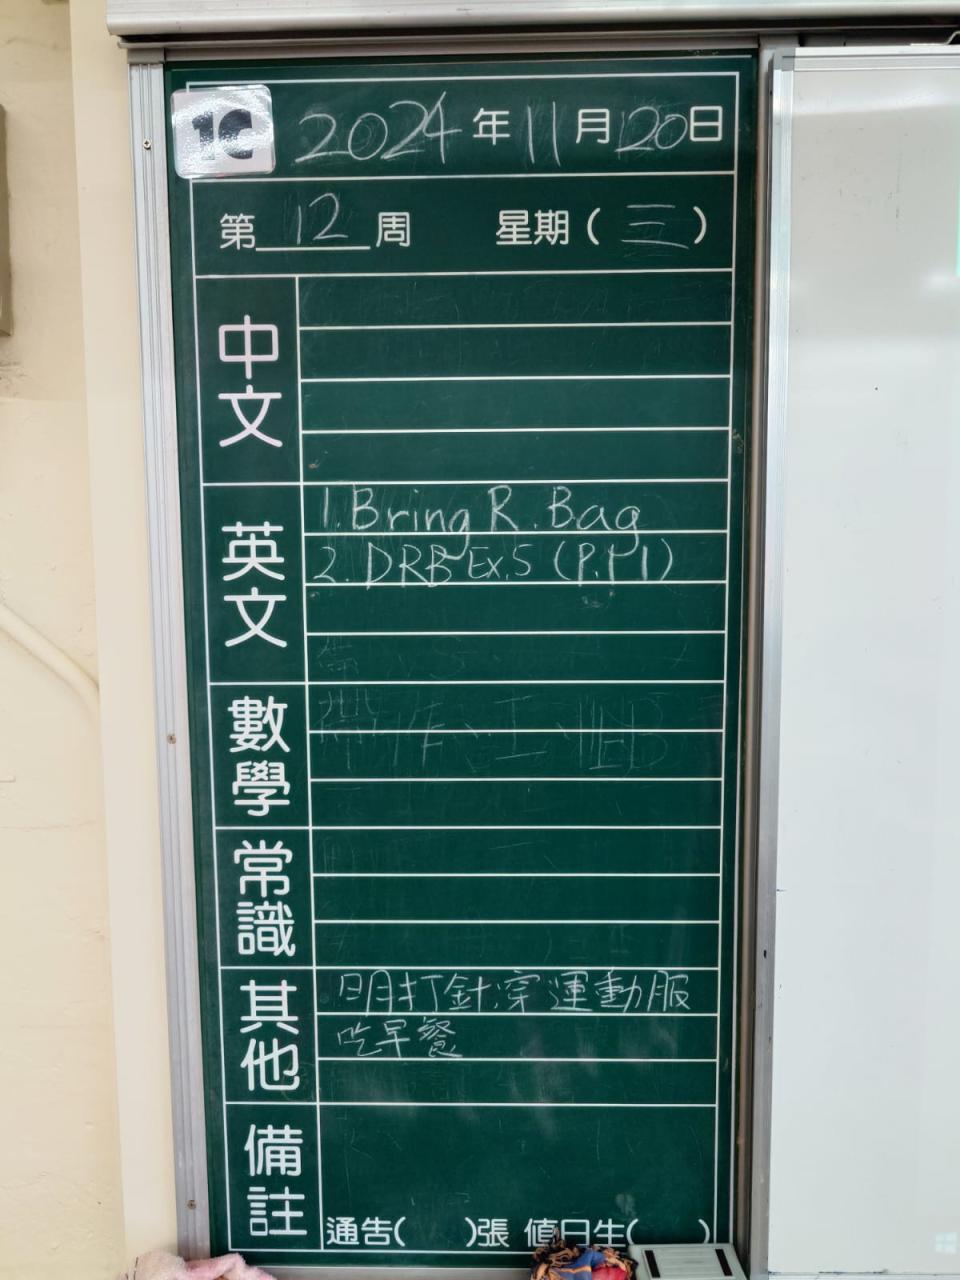 1C 2024年11月20日
第12周 星期(三)
中文
英文
1. Bring R. Bag
2. DRB Ex.5 (P.11)
數學
常識
其他
明打針穿運動服
吃早餐
備註
通告( )張 值日生( )